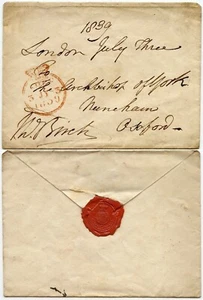 1839
London July Three
To
The Archbishop of York
Nuneham
Oxford
1839